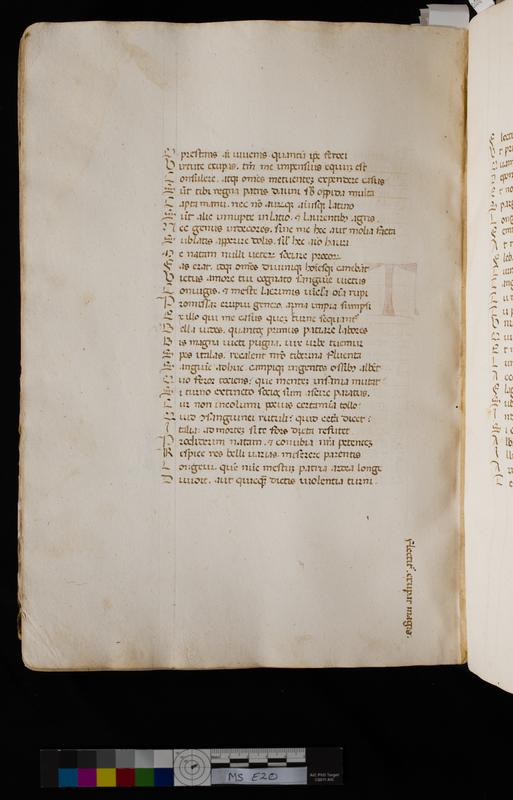 O prestans aı̃ iuuenis. quantũ ip̃e feroci
V irtute exupas. tãt me impensius equum est
C onsulere. atqȝ omes metuentez expendere casus
S unt tibi regna patris dauni. sũt oppida multa
C apta manu. nec nõ aurũqȝ aı̃usqȝ latino
S unt alie innupte in latio. ⁊ laurentibȝ agris.
N ec genus indecores. sine me hec aut molia fãtu
S ublatis apperire dolis. siml̃ hec aı̃o hauri
M e natam nulli ueterȝ sociare procorȝ
F as erat. idqȝ omẽs diuiniqȝ hoı̃esqȝ canebãt
V ictus amore tui cognato sanguine uictus
C oniugis. ⁊ meste lacrimis uı̃cla oı̃a rupi
P romissaz eripui genero. arma impia sumpsi
E x illo qui me casus quez turne sequant̃
B ella uides. quantoz primus patiare labores
B is magna uicti pugna. uix urbe tuemur
S pes italas. recalent nr̃o tiberina fluenta
S anguine adhuc. campiqȝ ingentes ossibȝ albẽt
Q uo feror tociens: que mentez insania mutat
S i turno extincto socios sum ascire paratus.
C ur non incolumi pocius certamĩa tollo:
Q uid cõsanguinei rutuli: quid cetã dicet:
I talia: ad mortez si te fors dicta refutet
P rodiderim natam. ⁊ conubia nrã petentez
R espice res belli uarias. miserere parentis
L ongeui. quẽ nũc mestuz patria ardea longe
D iuidit. aut quicq̃ȝ dictis uiolentia turni.
T
flectit̃. exupat magis.
MS E20